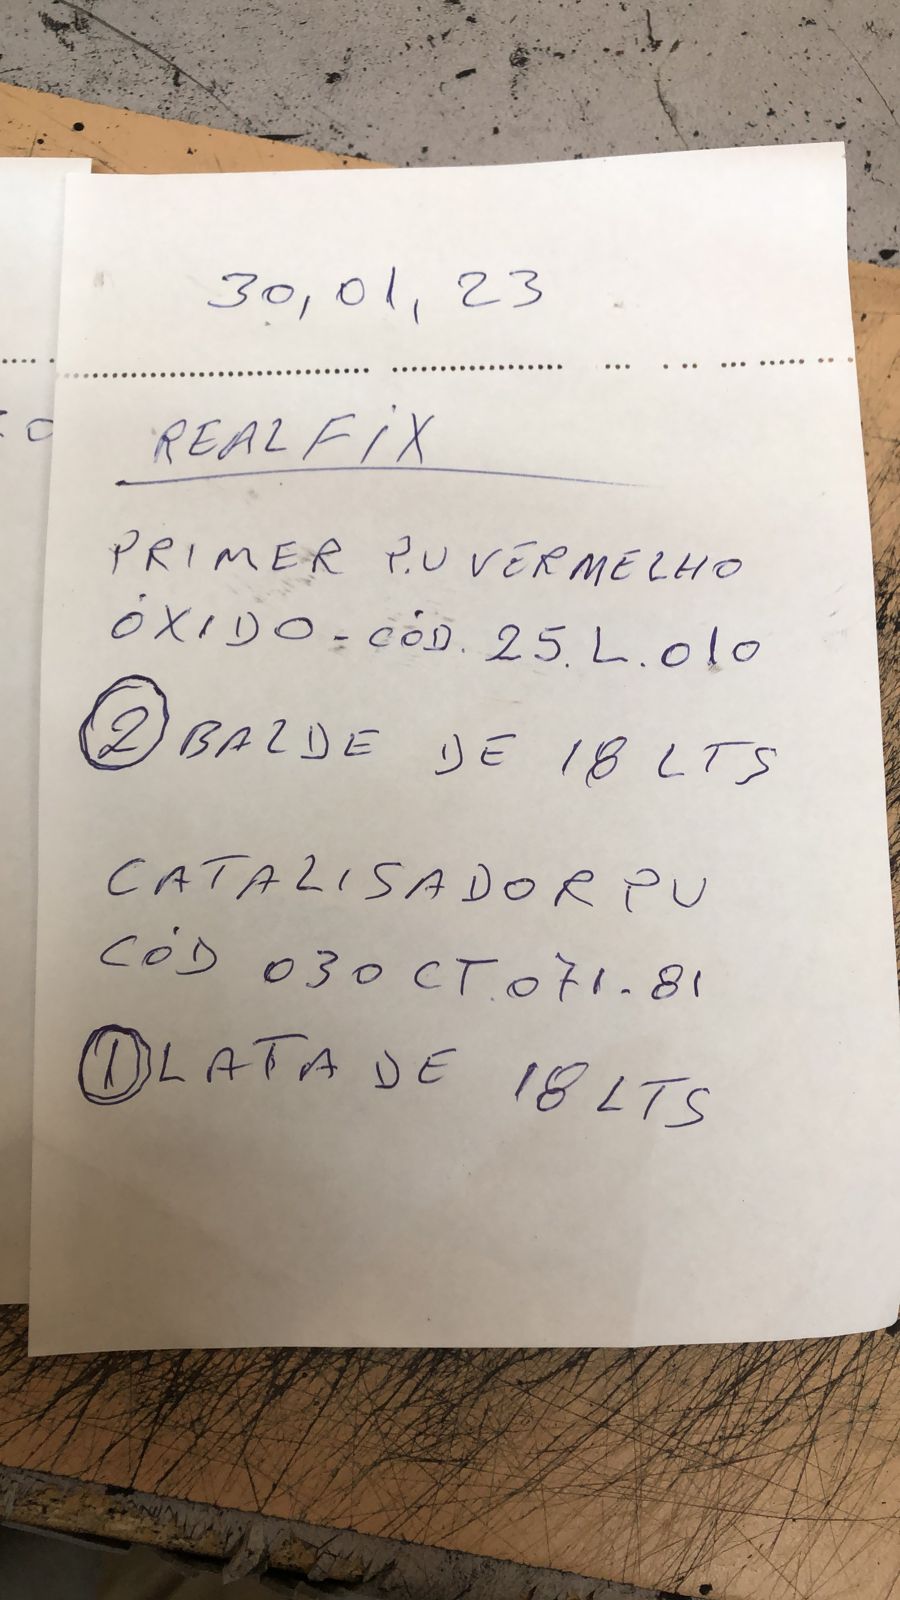 30,01,23
REALFIX
PRIMER P.U VERMELHO
ÓXIDO - CÓD. 25.L.010
2 BALDE DE 18 LTS
CATALISADOR PU
CÓD 030 CT.071-81
1 LATA DE 18 LTS